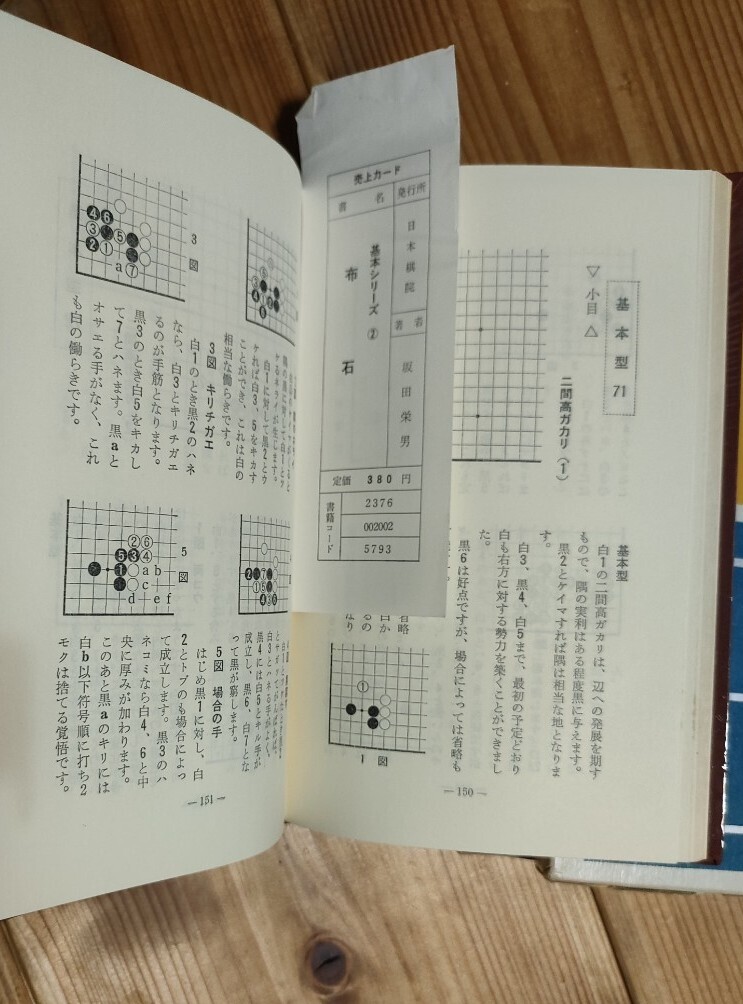 基本型 71
▽ 小目 △
二間高ガカリ(1)
基本型
白1の二間高ガカリは、辺への発展を期す
もので、隅の実利はある程度黒に与えます。
黒2とケイマすれば隅は相当な地となりま
す。
白3、黒4、白5まで、最初の予定どおり
白も右方に対する勢力を築くことができまし
た。
黒6は好点ですが、場合によっては省略も
1図
—150—
売上カード
書名
発行所
日本棋院
著者
坂田栄男
基本シリーズ②
布石
定価 380円
書籍コード
2376
002002
5793
白1に対して黒2とウ
ケれば白3、5をキカす
ことができ、これは白の
相当な働らきです。
3図 キリチガエ
白1のとき黒2のハネ
なら、白3とキリチガエ
るのが手筋となります。
黒3のとき白5をキカし
て7とハネます。黒aと
オサエる手がなく、これ
も白の働らきです。
3図
4
6
3
5
2
1
a
7
5図
2
6
5
3
4
1
a
b
c
d
e
f
白3とハネる手がよく、
黒4には白5とキル手が
成立し、黒6、白7とな
って黒が窮します。
5図 場合の手
はじめ黒1に対し、白
2とトブのも場合によっ
て成立します。黒3のハ
ネコミなら白4、6と中
央に厚みが加わります。
このあと黒aのキリには
白b以下符号順に打ち2
モクは捨てる覚悟です。
—151—